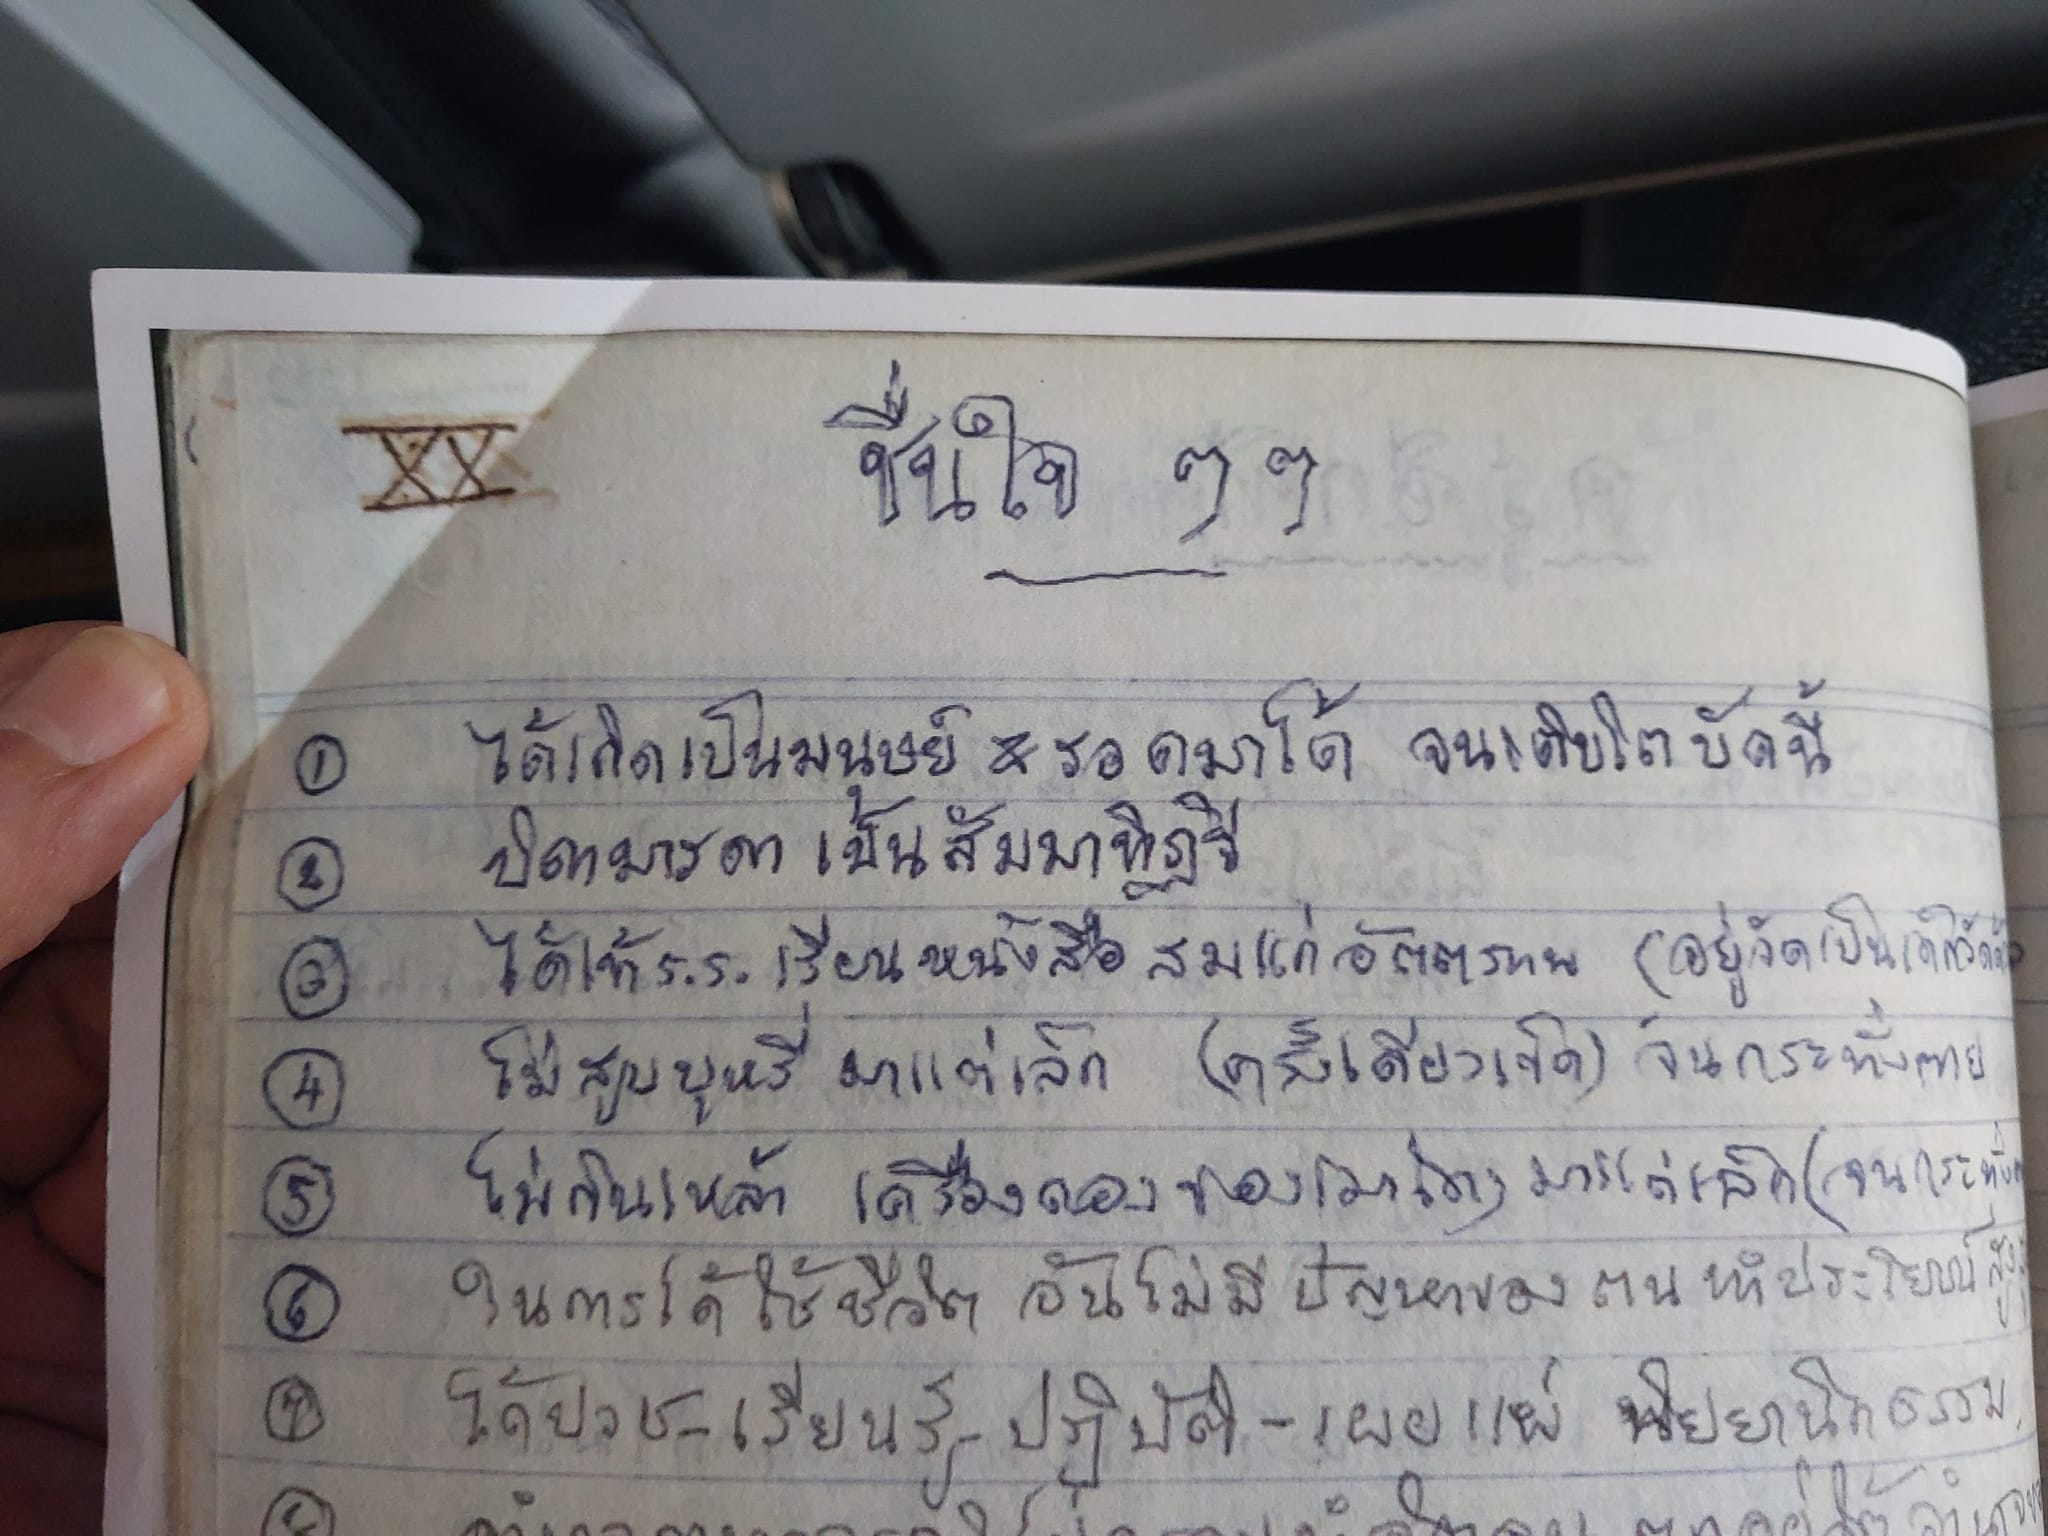 XX
ชื่นใจ ๆ ๆ
① ได้เกิดเป็นมนุษย์ & รอดมาได้ จนเติบโตบัดนี้
② บิดามารดา เป็นสัมมาทิฏฐิ
③ ได้เข้า ร.ร. เรียนหนังสือ สมแก่อัตตภาพ (อยู่วัดเป็นเด็กวัดด้วย
④ ไม่สูบบุหรี่ มาแต่เล็ก (ครั้งเดียวเข็ด) จนกระทั่งตาย
⑤ ไม่กินเหล้า เครื่องดองของเมาใดๆ มาแต่เล็ก (จนกระทั่ง
⑥ ในการได้ใช้ชีวิต อันไม่มีปัญหาของตน ทำประโยชน์
⑦ ได้บวช-เรียนรู้-ปฏิบัติ-เผยแผ่ นิยยานิกธรรม
⑧